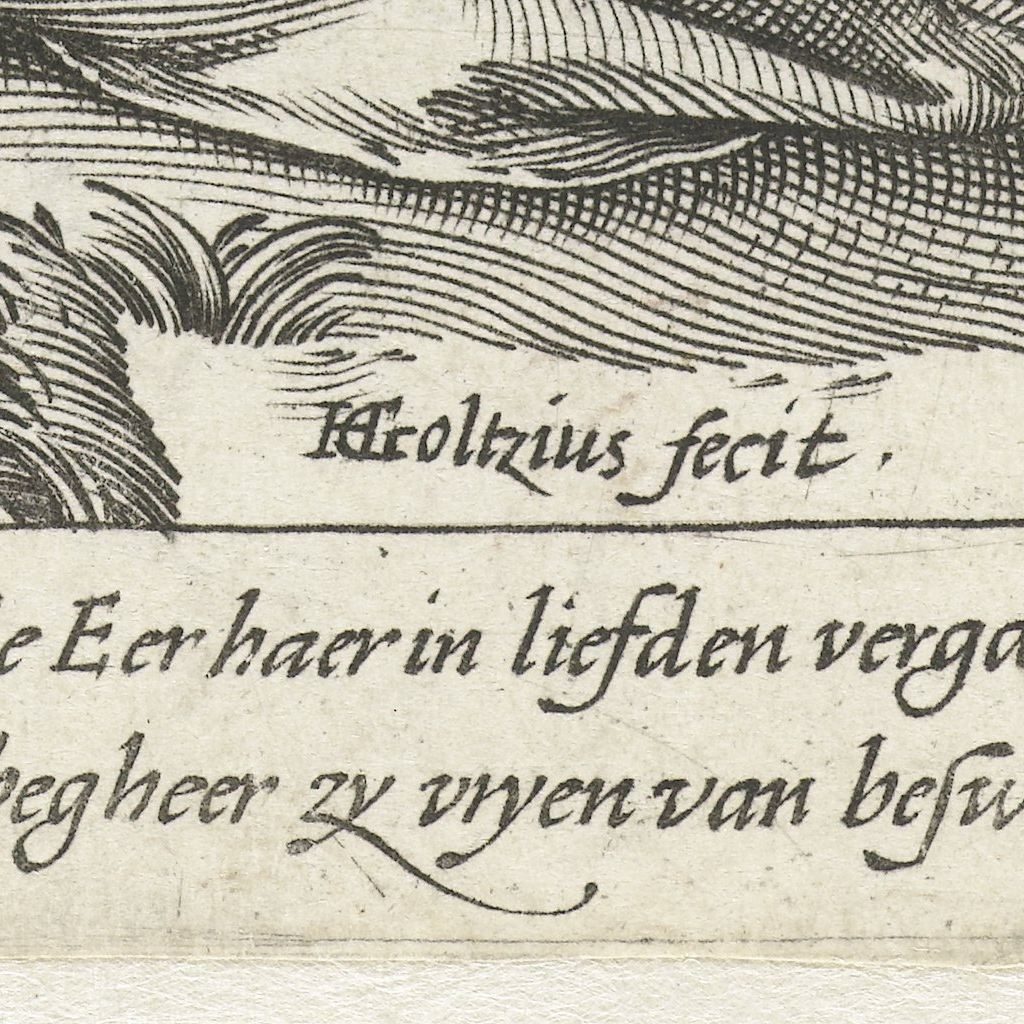 HGoltzius fecit.
e Eer haer in liefden verga
begheer zy vryen van besw